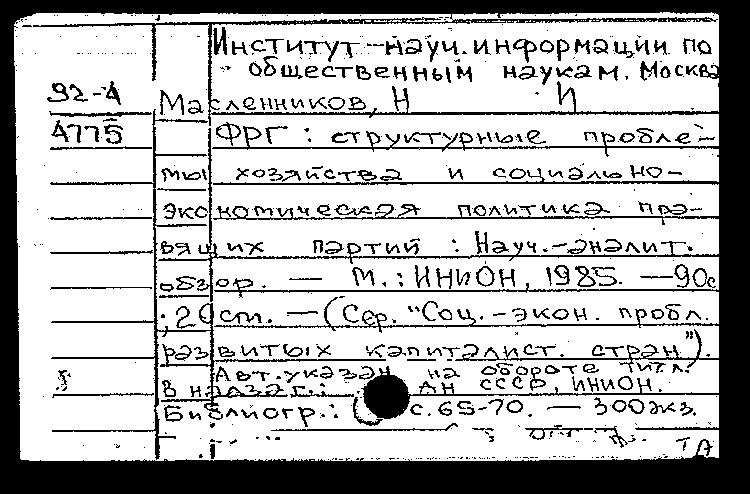 Институт науч. информации по
общественным наукам. Москва
92-4
Масленников, Н И
А775
ФРГ : структурные пробле-
мы хозяйства и социально-
экономическая политика пра-
вящих партий : Науч.-аналит.
обзор. — М. : ИНИОН, 1985. — 90с
; 20 см. — (Сер. "Соц.-экон. пробл.
развитых капиталист. стран").
Авт. указан на обороте тит. л.
В надзаг.: АН СССР, ИНИОН.
Библиогр.: с. 65-70. — 300 экз.